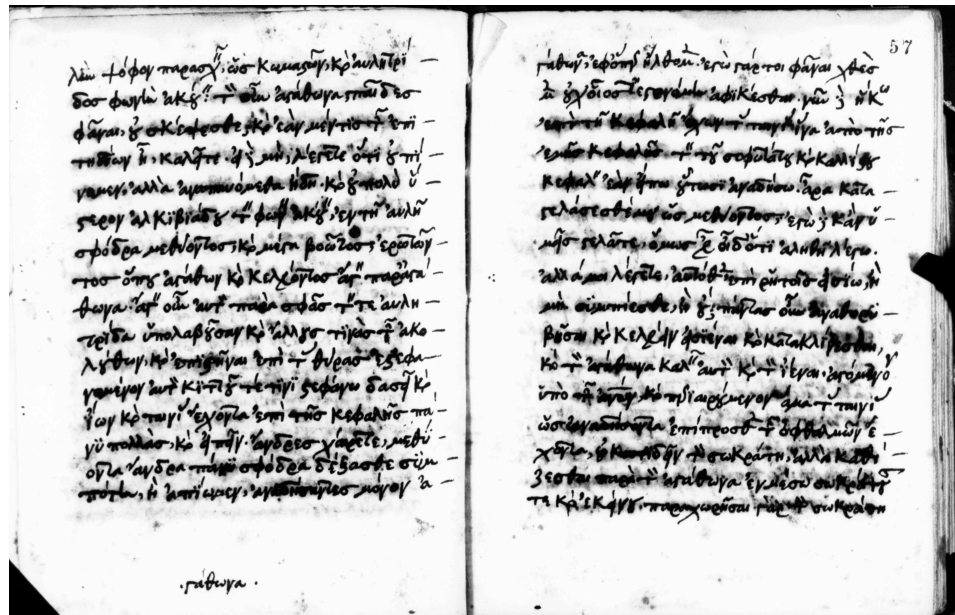 λὺν ψόφον παρασχεῖν, ὡς κωμαστῶν, καὶ αὐλητρί
δος φωνὴν ἀκούειν. τὸν οὖν ἀγάθωνα, παῖδες
φάναι, οὐ σκέψεσθε; καὶ ἐὰν μέν τις τῶν ἐπι
τηδείων ᾖ, καλεῖτε. εἰ δὲ μὴ, λέγετε ὅτι οὐ πί
νομεν, ἀλλὰ ἀναπαυόμεθα ἤδη. καὶ οὐ πολὺ ὕ
στερον ἀλκιβιάδου τὴν φωνὴν ἀκούειν, ἐν τῇ αὐλῇ
σφόδρα μεθύοντος, καὶ μέγα βοῶντος, ἐρωτῶν
τος ὅπου ἀγάθων καὶ κελεύοντος ἄγειν παρ' ἀγά
θωνα. ἄγειν οὖν αὐτὸν παρὰ σφᾶς τήν τε αὐλη
τρίδα ὑπολαβοῦσαν καὶ ἄλλους τινὰς τῶν ἀκο
λούθων, καὶ ἐπιστῆναι ἐπὶ τὰς θύρας ἐστεφα
νωμένον αὐτὸν κιττοῦ τέ τινι στεφάνω δασεῖ καὶ
ἴων καὶ ταινίας ἔχοντα ἐπὶ τῆς κεφαλῆς πά
νυ πολλὰς, καὶ εἰπεῖν. ἄνδρες χαίρετε, μεθύ
οντα ἄνδρα πάνυ σφόδρα δέξασθε συμ
πότην, ἢ ἀπίωμεν, ἀναδήσαντες μόνον ἀ
·γάθωνα·
57
γάθωνα, ἐφ' ὅπερ ἤλθομεν. ἐγὼ γάρ τοι φάναι χθὲς
μὲν οὐχ οἷός τ' ἐγενόμην ἀφικέσθαι. νῦν δὲ ἥκω
ἐπὶ τῇ κεφαλῇ ἔχων τὰς ταινίας ἵνα ἀπὸ τῆς
ἐμῆς κεφαλῆς τὴν τοῦ σοφωτάτου καὶ καλλίστου
κεφαλὴν ἐὰν εἴπω οὑτωσὶ ἀναδήσω. ἆρα κατα
γελάσεσθέ μου ὡς μεθύοντος; ἐγὼ δὲ κἂν ὑ
μεῖς γελᾶτε, ὅμως εὖ οἶδ' ὅτι ἀληθῆ λέγω.
ἀλλά μοι λέγετε, αὐτόθεν ἐπὶ ῥητοῖς εἰσίω, ἢ
μὴ συμπίεσθε, ἢ οὔ; πάντας οὖν ἀναθορυ
βῆσαι καὶ κελεύειν εἰσιέναι καὶ κατακλίνεσθαι,
καὶ τὸν ἀγάθωνα καλεῖν αὐτὸν καὶ τὸν ἰέναι ἀγόμενον
ὑπὸ τῶν ἀνθρώπων, καὶ περιαιρούμενον ἅμα τὰς ταινίας
ὡς ἀναδήσοντα ἐπίπροσθεν τῶν ὀφθαλμῶν ἔ
χοντα, οὐ κατιδεῖν τὸν σωκράτη, ἀλλὰ καθί
ζεσθαι παρὰ τὸν ἀγάθωνα ἐν μέσω σωκράτους
τε καὶ ἐκείνου. παραχωρῆσαι γὰρ τὸν σωκράτη